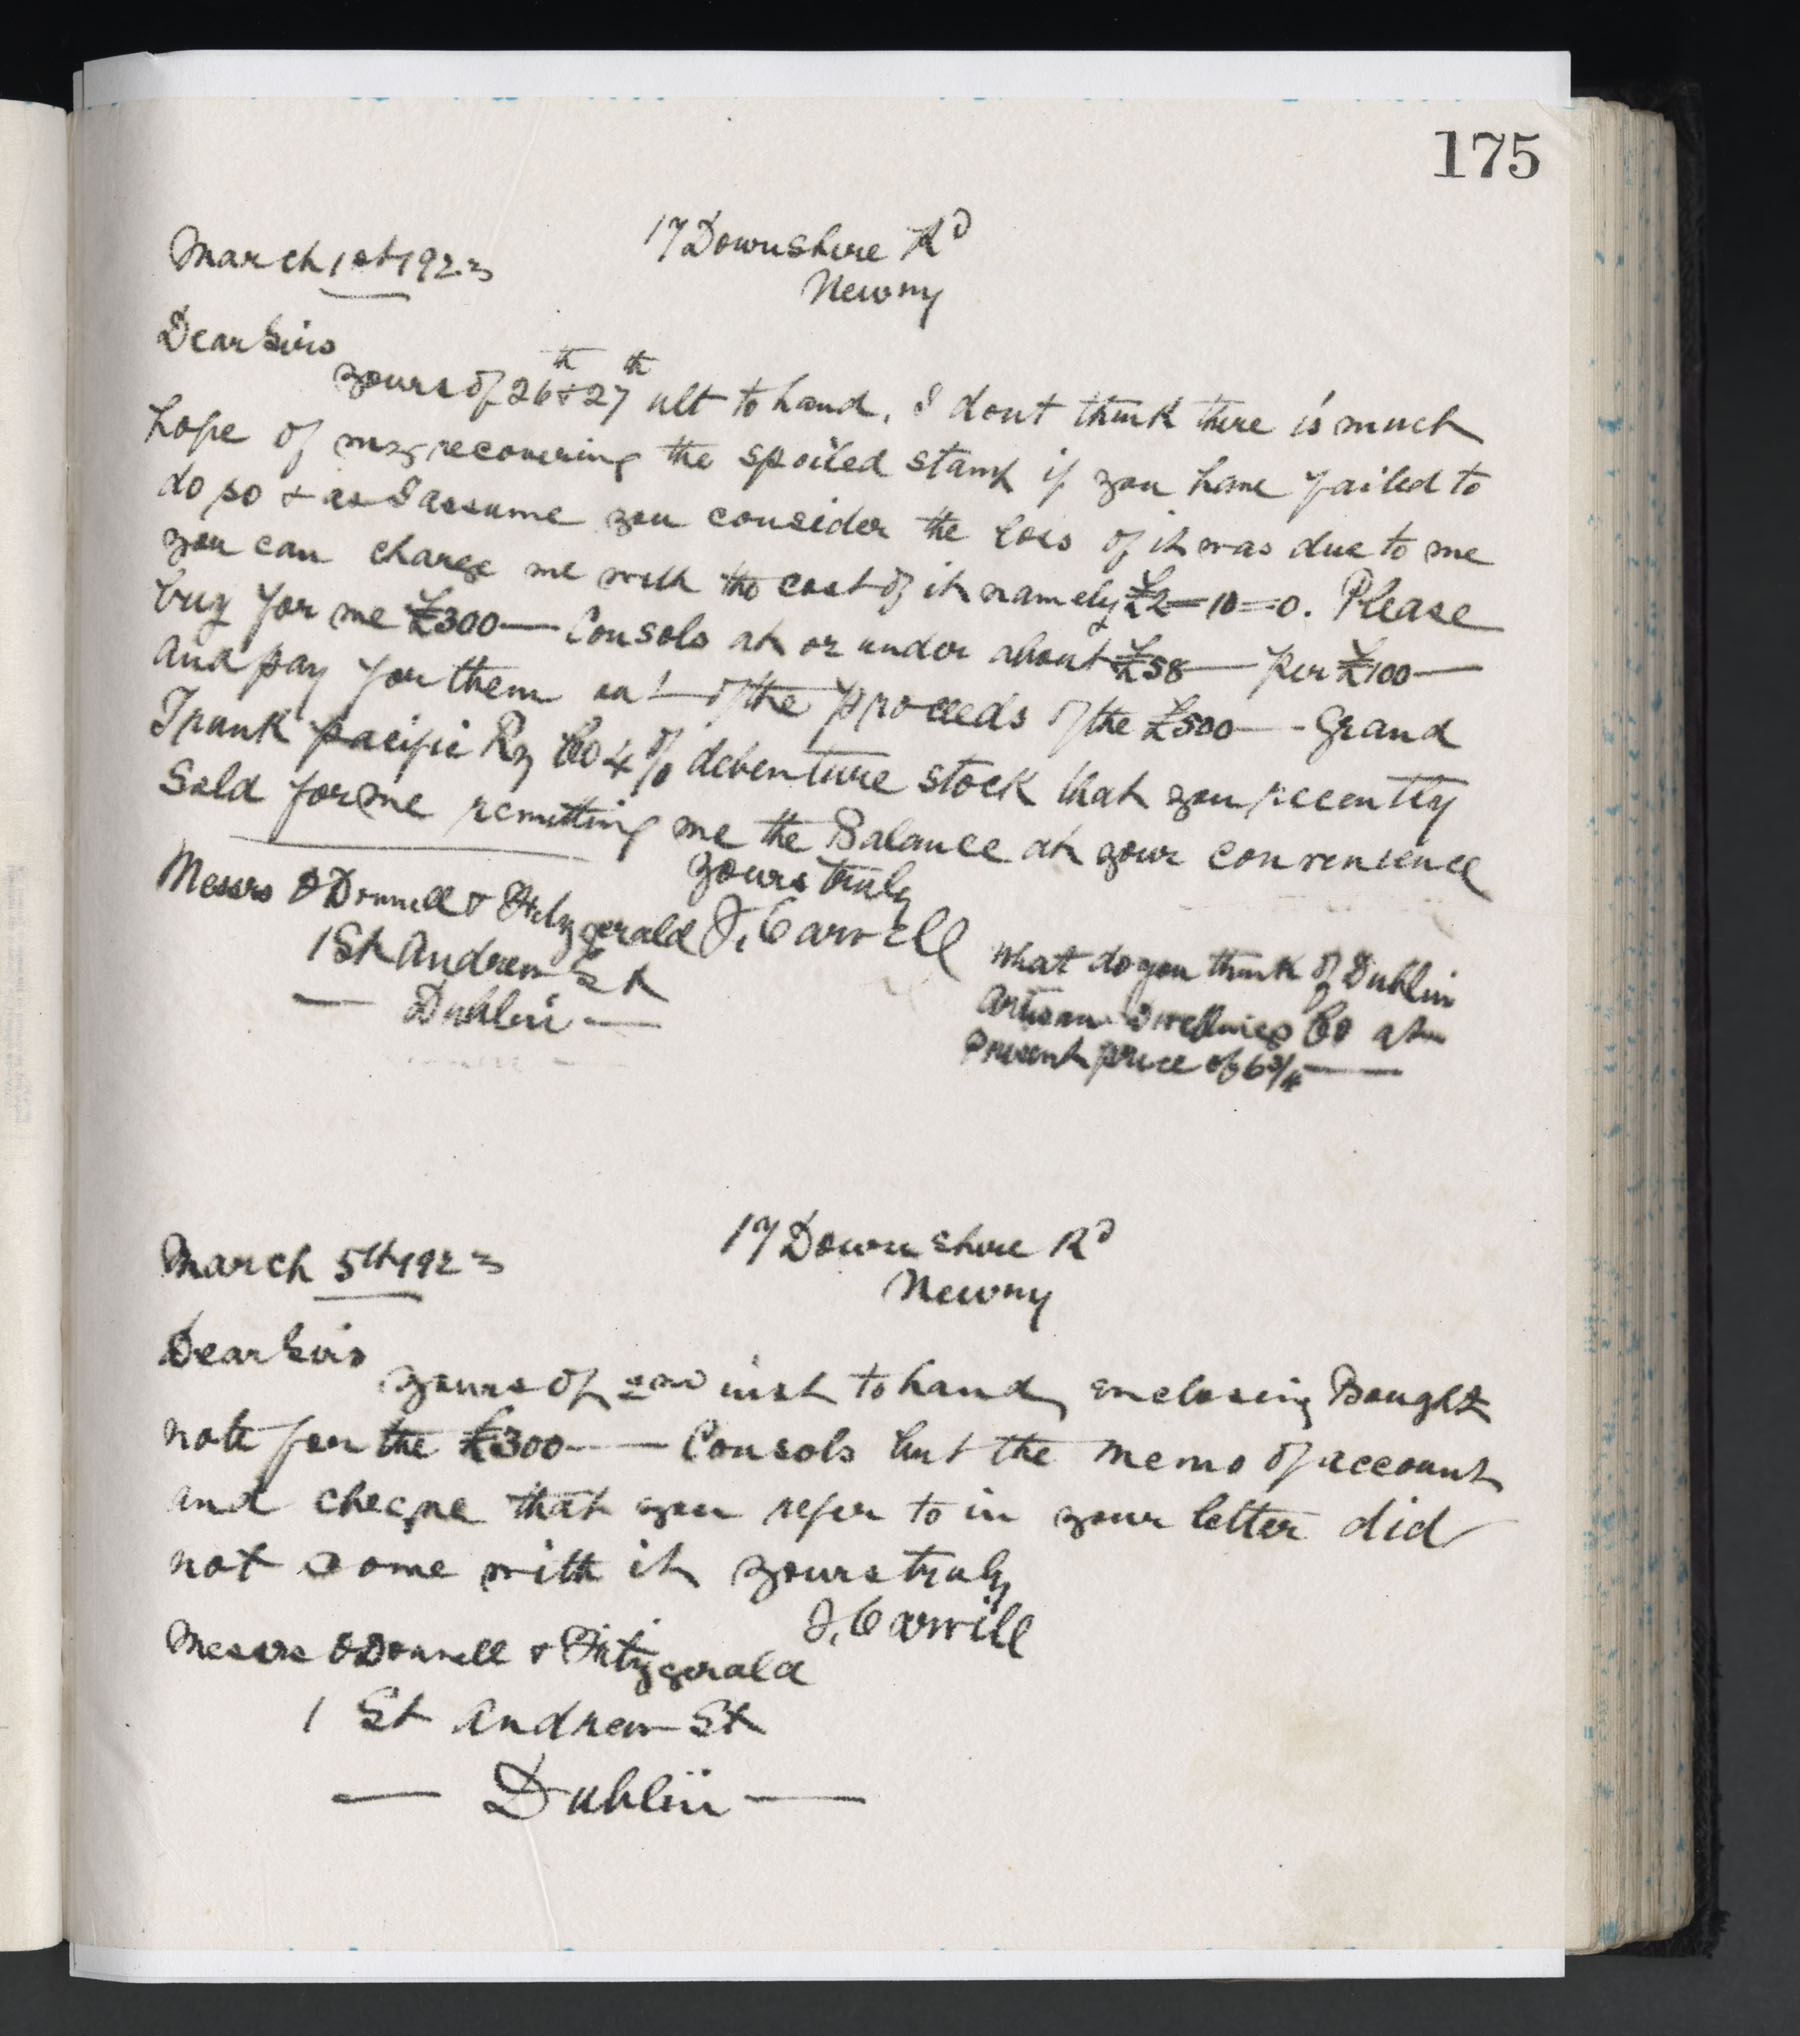 175
17 Downshire Rd
March 1st 1923
Newry
Dear Sirs
yours of 26th & 27th ult to hand, I dont think there is much
hope of my recovering the spoiled stamp if you have failed to
do so & as I assume you consider the loss of it was due to me
you can charge me with the cost of it namely £2=10=0. Please
buy for me £300 — Consols at or under about £58 — per £100 —
and pay for them out of the proceeds of the £500 — Grand
Trunk Pacific Ry Co 4% debenture stock that you recently
sold for me remitting me the Balance at your convenience
yours truly
J. Carvill
Messrs O'Donnell & Fitzgerald
1 St Andrew St
— Dublin —
What do you think of Dublin
Artisan Dwellings Co at
present price of 6 3/4 —
17 Downshire Rd
March 5th 1923
Newry
Dear Sirs
yours of 2nd inst to hand, enclosing Bought
note for the £300 — Consols but the memo of account
and cheque that you refer to in your letter did
not come with it yours truly
J. Carvill
Messrs O'Donnell & Fitzgerald
1 St Andrew St
— Dublin —